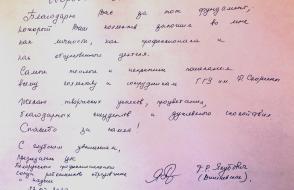 Благодарю Вас за тот фундамент,
который Ваш коллектив заложил во мне
как личности, как профессионала и
как общественного деятеля.
Самые теплые и искренние пожелания
всему коллективу и сотрудникам ГГУ им. Ф. Скорины
Желаю творческих успехов, процветания,
благодарных студентов и душевного спокойствия
Спасибо за знания!
С глубоким уважением,
Президиум ЦК
Белорусского профессионального
союза работников
и науки